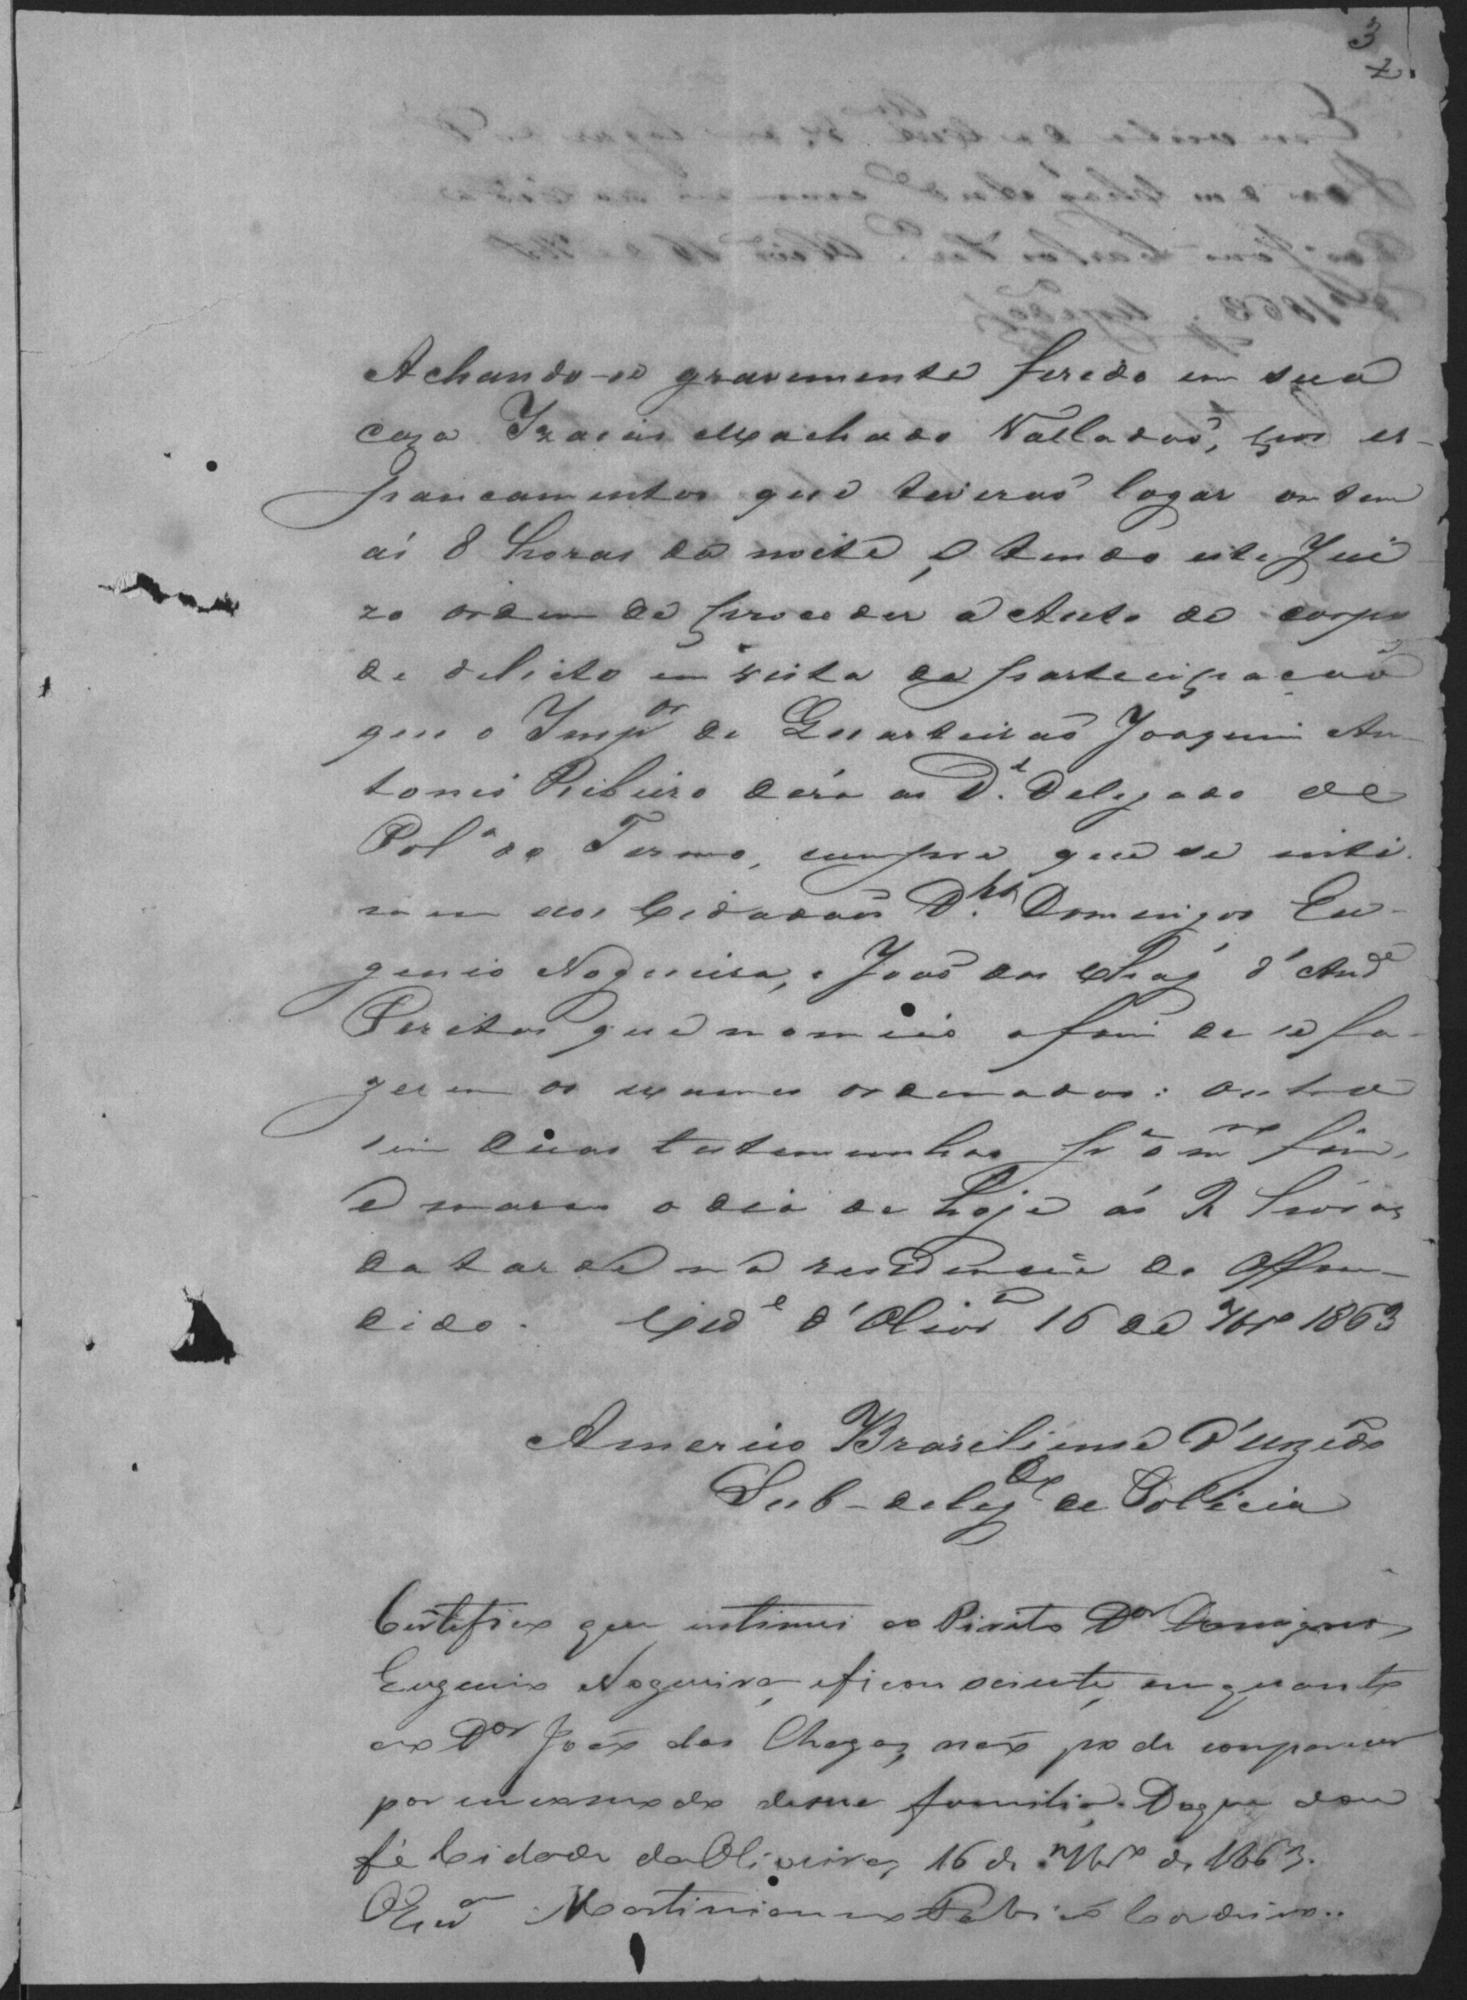 3
Achando-se gravemente ferido em sua
caza Izaias Machado Valladaõ, por es-
pancamentos que tiveraõ logar ontem
ás 8 horas da noite, e tendo este Jui
zo ordem de proceder a Auto de corpo
de delicto em vista da participaçaõ
que o Insp.or de Quarteiraõ Joaquim An-
tonio Ribeiro dera ao D.r Delegado de
Pol.a do Termo, cumpre que se inti-
mem aos Cidadaõs D.res Domingos Eu-
genio Nogueira, e Joaõ das Chag.s d'And.e
Peritos que nomeio afim de se fa-
zerem os exames ordenados: outro
sim duas testemunhas p.a o m.mo fim,
e marco o dia de hoje ás 2 horas
da tarde na residencia do Offen-
dido. Cid.e d'Olivr.a 16 de 9br.o 1863
Americo Brasiliense
Sub-deleg.do de Policia
Certifico que intimei ao Pirito D.or Domingos
Eugenio Nogueira, e ficou sciente, em quanto
ao D.or Joaõ das Chagas, naõ pode comparecer
por incomodo de sua familia. Do que dou
fé Cidade da Oliveira, 16 de 9br.o de 1863.
O Escr.am Martiniano Patricio Cordeiro..